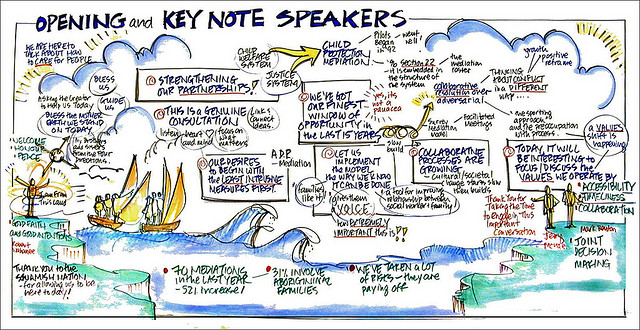 OPENING and KEY NOTE SPEAKERS
WE ARE HERE to
TALK ABOUT HOW
to CARE for PEOPLE
BLESS
US
Asking the Creator
to Help us Today
GUIDE
US
BLESS the MOTHER
EARTH WE STAND
ON TODAY
WELCOME
HONOUR
PEACE
GOOD FAITH
and GOOD INTENTIONS
THANK YOU to the
SQUAMISH NATION
- for allowing us to be
here today!
STRENGTHENING
OUR PARTNERSHIPS!
CHILD
WELFARE
SYSTEM
JUSTICE
SYSTEM
CHILD
PROTECTION
MEDIATION
Pilots
Began
in '92
went
well!
THIS IS a GENUINE
CONSULTATION
Link &
Connect
ideas
listen - heart
and mind
focus
on
what
matters
OUR DESIRES
to BEGIN with
the LEAST INTRUSIVE
MEASURES FIRST
ADR
- Mediation
WE'VE GOT
OUR FINEST
WINDOW of
OPPORTUNITY in
the LAST 15 YEARS
its
not a
panacea
Section 22
- it is embedded in
the structure of
the system
the
mediation
roster
collaborative
resolution over
adversarial
THINKING
ABOUT CONFLICT
in a DIFFERENT
WAY....
growth
positive
reframe
Facilitated
Meetings
slow
build
LET US
IMPLEMENT
a MODEL
the WAY WE KNOW
IT CAN BE DONE
families
like it!
gives them
VOICE
EXTREMELY
IMPORTANT this is!
a tool for improving
relationship between
social worker & family
COLLABORATIVE
PROCESSES ARE
GROWING
- cultural/societal
Values starts slow
then builds
the sporting
approach
and the preoccupation
with process
a VALUES
shift is
happening
TODAY IT WILL
BE INTERESTING to
FOCUS / DISCUSS the
VALUES WE OPERATE BY
• ACCESSIBILITY
TIMELINESS
COLLABORATION
Thank You for
Taking the Time
to Engage in This
Important
Conversation
JOINT
DECISION
MAKING
• 70 MEDIATIONS
in the LAST YEAR
- 52% increase!
• 31% INVOLVE
ABORIGINAL
FAMILIES
• WE'VE TAKEN a LOT
of RISKS - they are
paying off